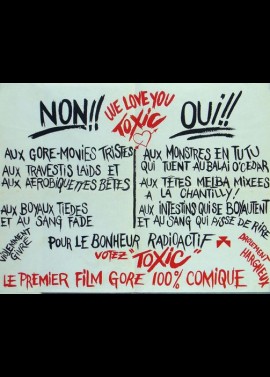 NON!!
WE LOVE YOU
TOXIC
OUI!!
AUX GORE-MOVIES TRISTES
AUX TRAVESTIS LAIDS ET
AUX AEROBIQUETTES BÊTES
AUX BOYAUX TIEDES
ET AU SANG FADE
AUX MONSTRES EN TUTU
QUI TUENT AU BALAI O'CEDAR
AUX TÊTES MELBA MIXEES
A LA CHANTILLY!
AUX INTESTINS QUI SE BOYAUTENT
ET AU SANG QUI PISSE DE RIRE
VIVEMENT
GIVRE
POUR LE BONHEUR RADIOACTIF
VOTEZ "TOXIC"
HARGNEUX
LE PREMIER FILM GORE 100% COMIQUE